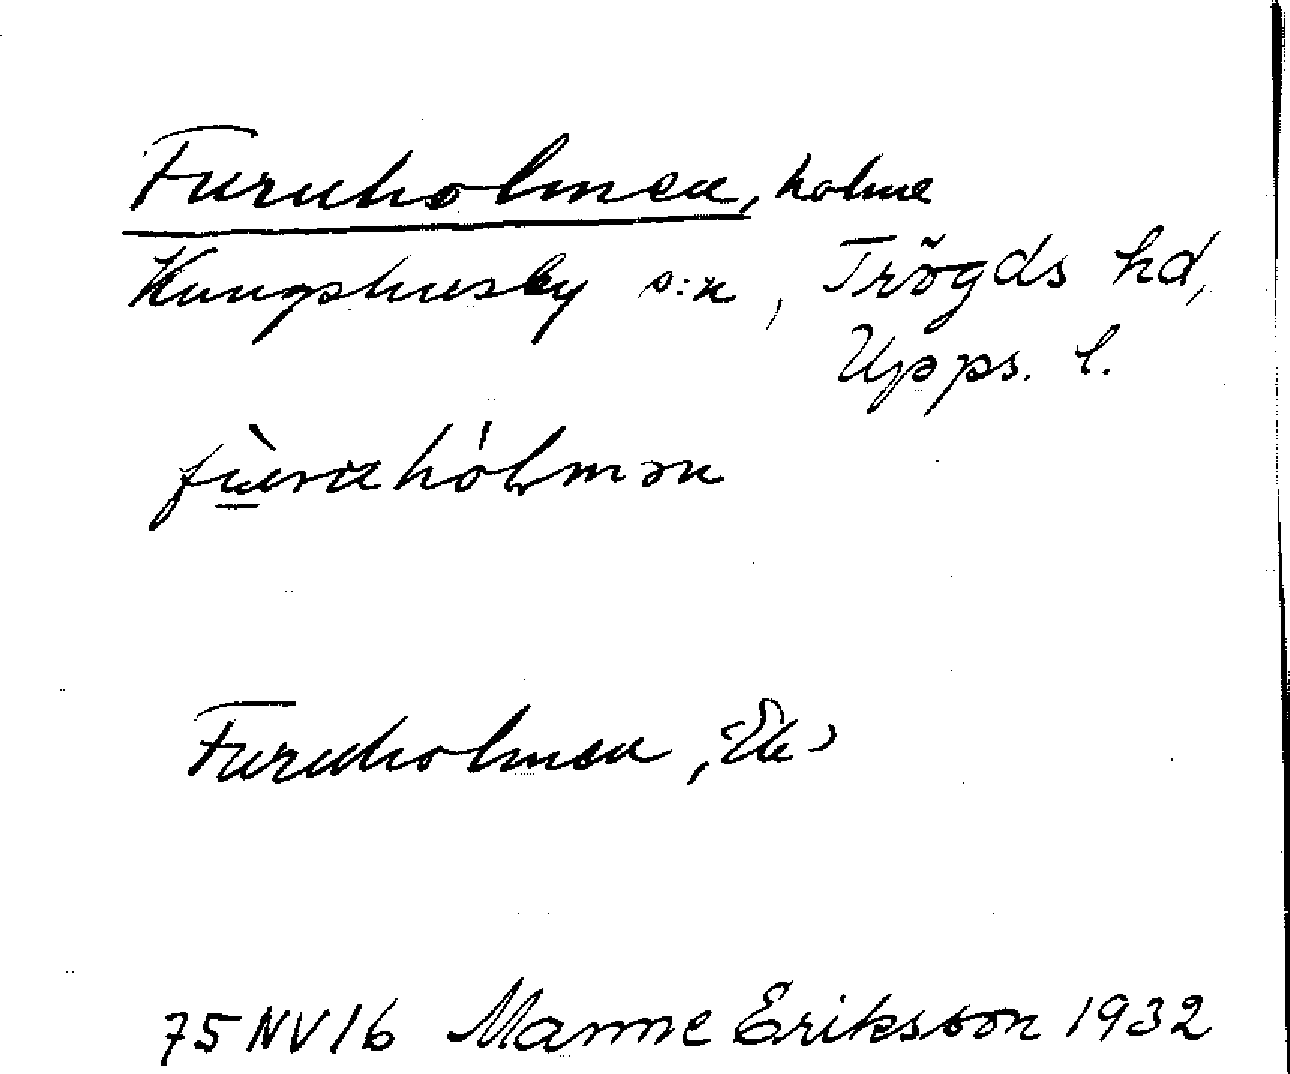 Furuholmen, holme
Kungshusby s:n, Trögds hd,
Upps. l.
fùruhólmən
Furuholmen, Ek
75 NV 1b Manne Eriksson 1932